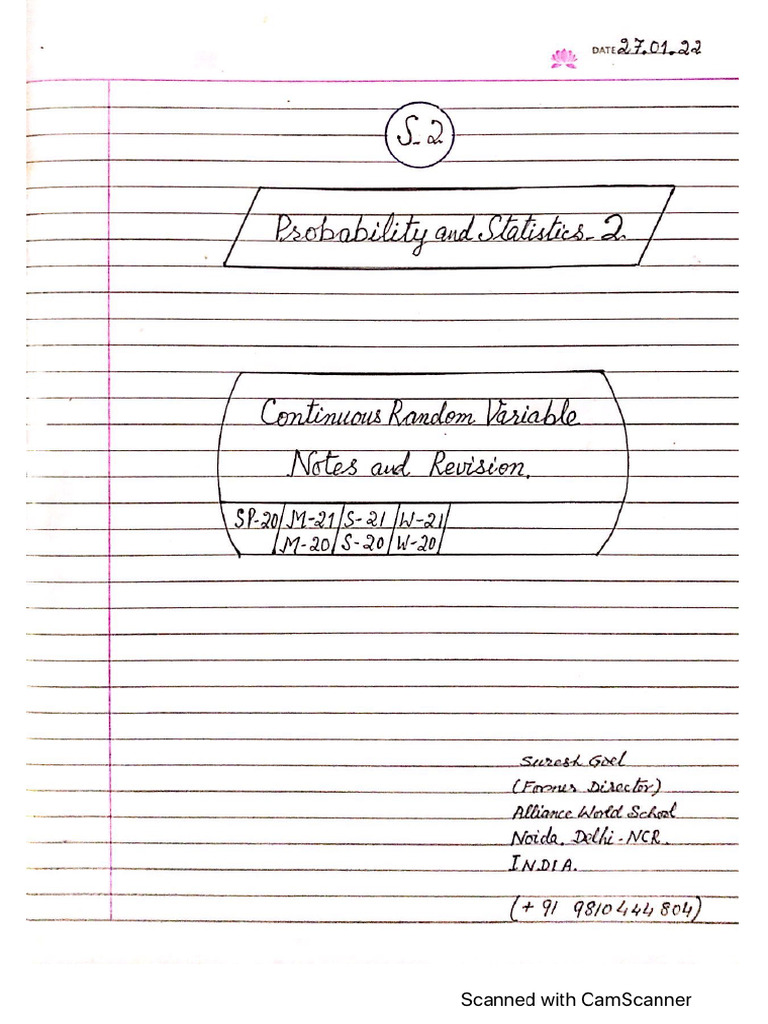 DATE 27.01.22
S-2
Probability and Statistics-2.
Continuous Random Variable
Notes and Revision.
SP-20/M-21/S-21/W-21/
/M-20/S-20/W-20/
Suresh Goel
(Former Director)
Alliance World School
Noida. Delhi-NCR.
INDIA.
(+91 9810444804)
Scanned with CamScanner